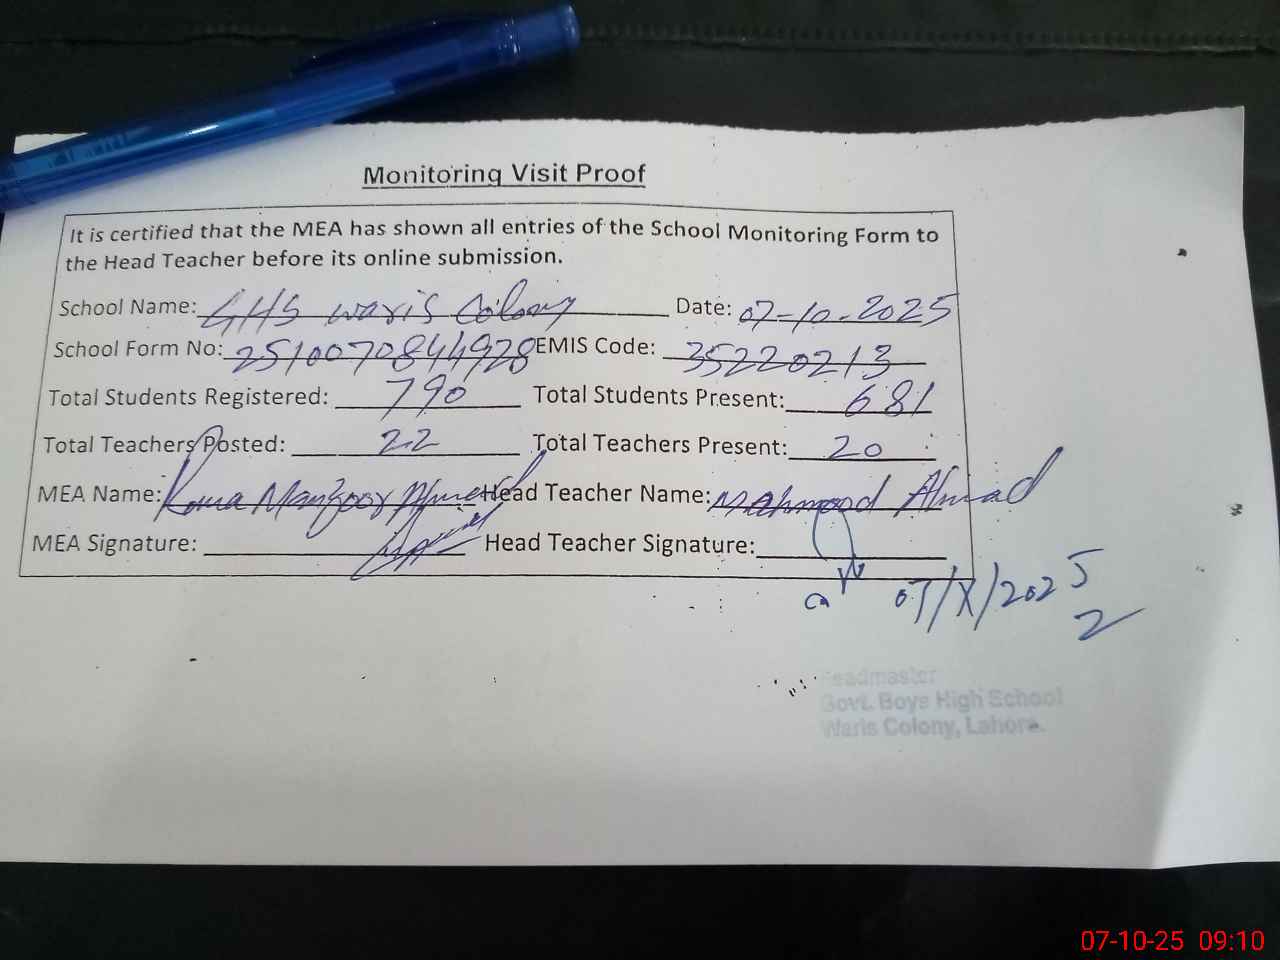 Monitoring Visit Proof
It is certified that the MEA has shown all entries of the School Monitoring Form to
the Head Teacher before its online submission.
School Name: GHS waris Colony Date: 07-10-2025
School Form No: 2510070844928 EMIS Code: 35220213
Total Students Registered: 790 Total Students Present: 681
Total Teachers Posted: 22 Total Teachers Present: 20
MEA Name: Manzoor Ahmed Head Teacher Name: Mahmood Ahmad
MEA Signature: Head Teacher Signature:
07/X/2025
Headmaster
Govt. Boys High School
Waris Colony, Lahore.
07-10-25 09:10